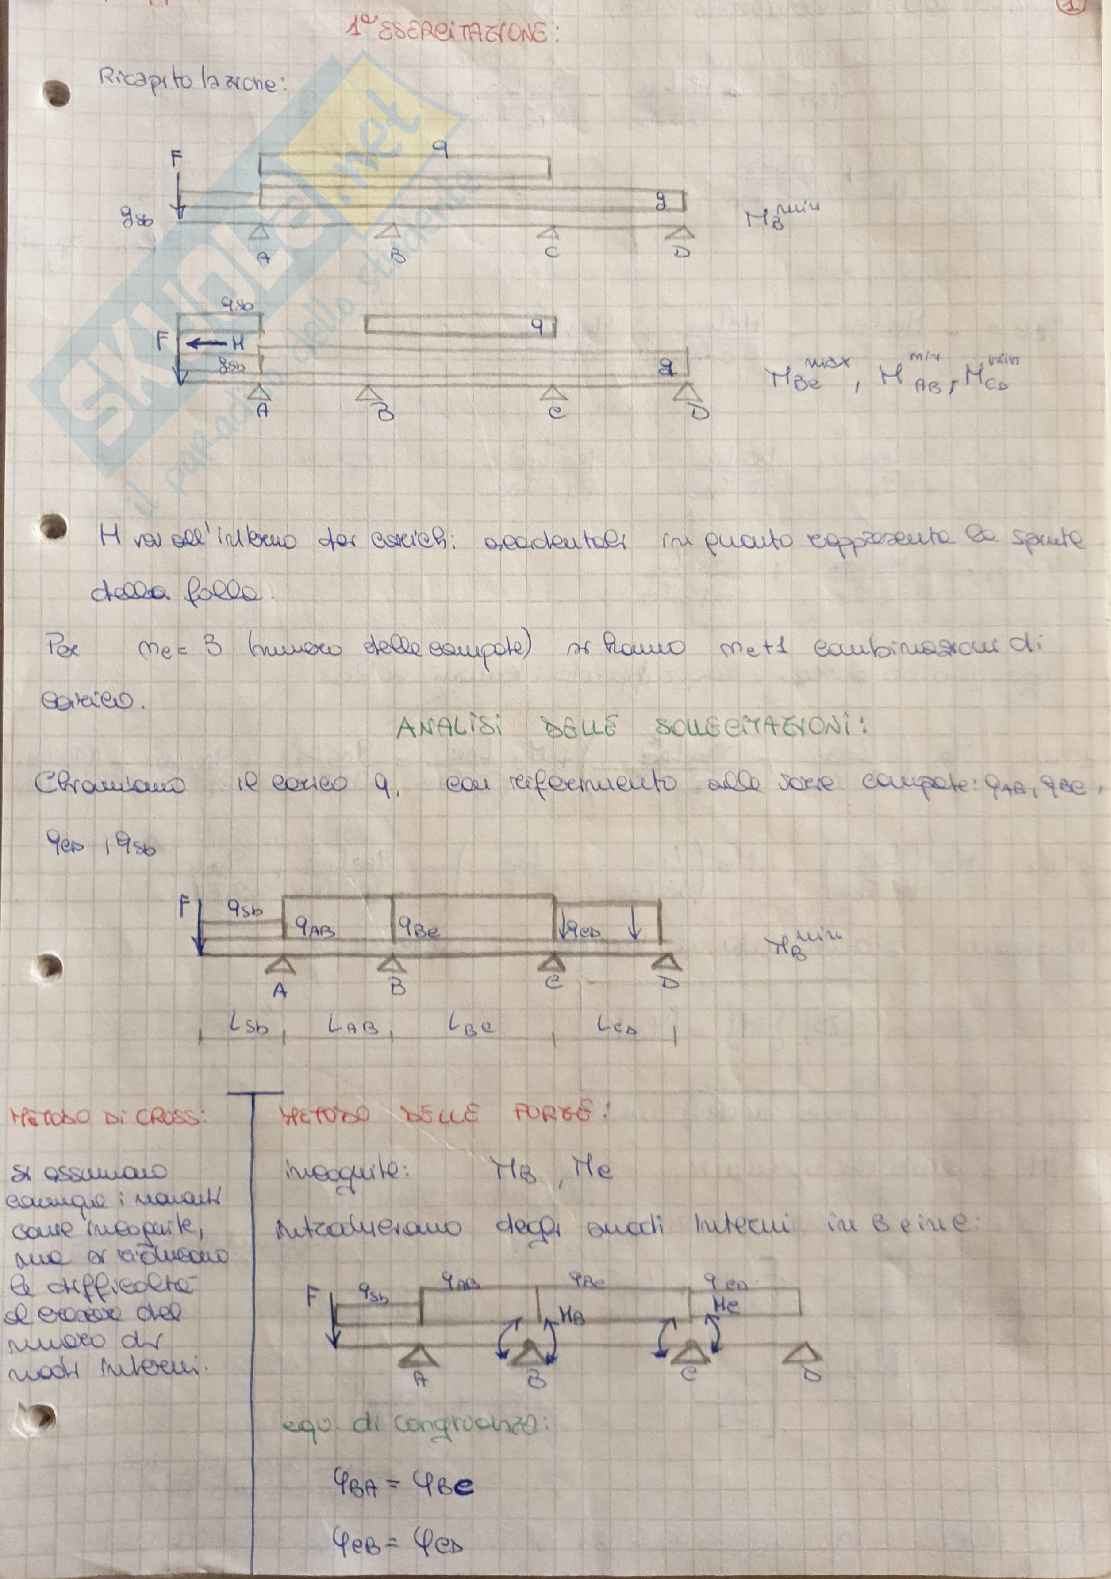 1
1ª ESERCITAZIONE:
Ricapitolazione:
F q
gsb g M_B^min
A B C D
qsb
F H q
gsb g M_BC^max, M_AB^min, M_CD^min
A B C D
H va all'interno dei carichi accidentali in quanto rappresenta la spinta
della folla.
Per mc= 3 (numero delle campate) si hanno mc+1 combinazioni di
carico.
ANALISI DELLE SOLLECITAZIONI:
Chiamiamo il carico q, con riferimento alle varie campate: qAB, qBC,
qCD, qsb
F qsb qAB qBC qCD M_B^min
A B C D
Lsb LAB LBC LCD
METODO DI CROSS:
si assumono
comunque i momenti
come incognite,
ma si riducono
le difficoltà
al crescere del
numero di
nodi interni.
METODO DELLE FORZE:
incognite: MB, MC
introduciamo degli snodi interni in B e in C:
F qsb qAB qBC qCD
MB MC
A B C D
equ. di congruenza:
φBA = φBC
φCB = φCD
SKUOLA.net
il paradiso dello studente